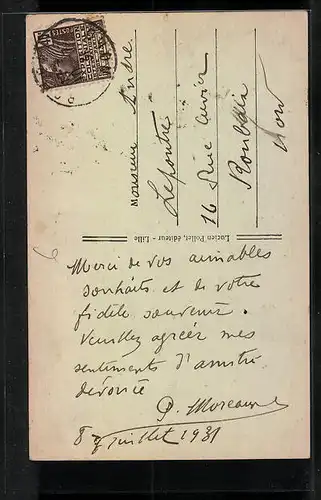 Monsieur André
Lepoutre
16 Rue Cuvier
Roubaix
Nord
Lucien Pollet, éditeur - Lille
Merci de vos aimables
souhaits et de votre
fidèle souvenir.
Veuillez agréer mes
sentiments d'amitié
dévouée
8 Juillet 1931